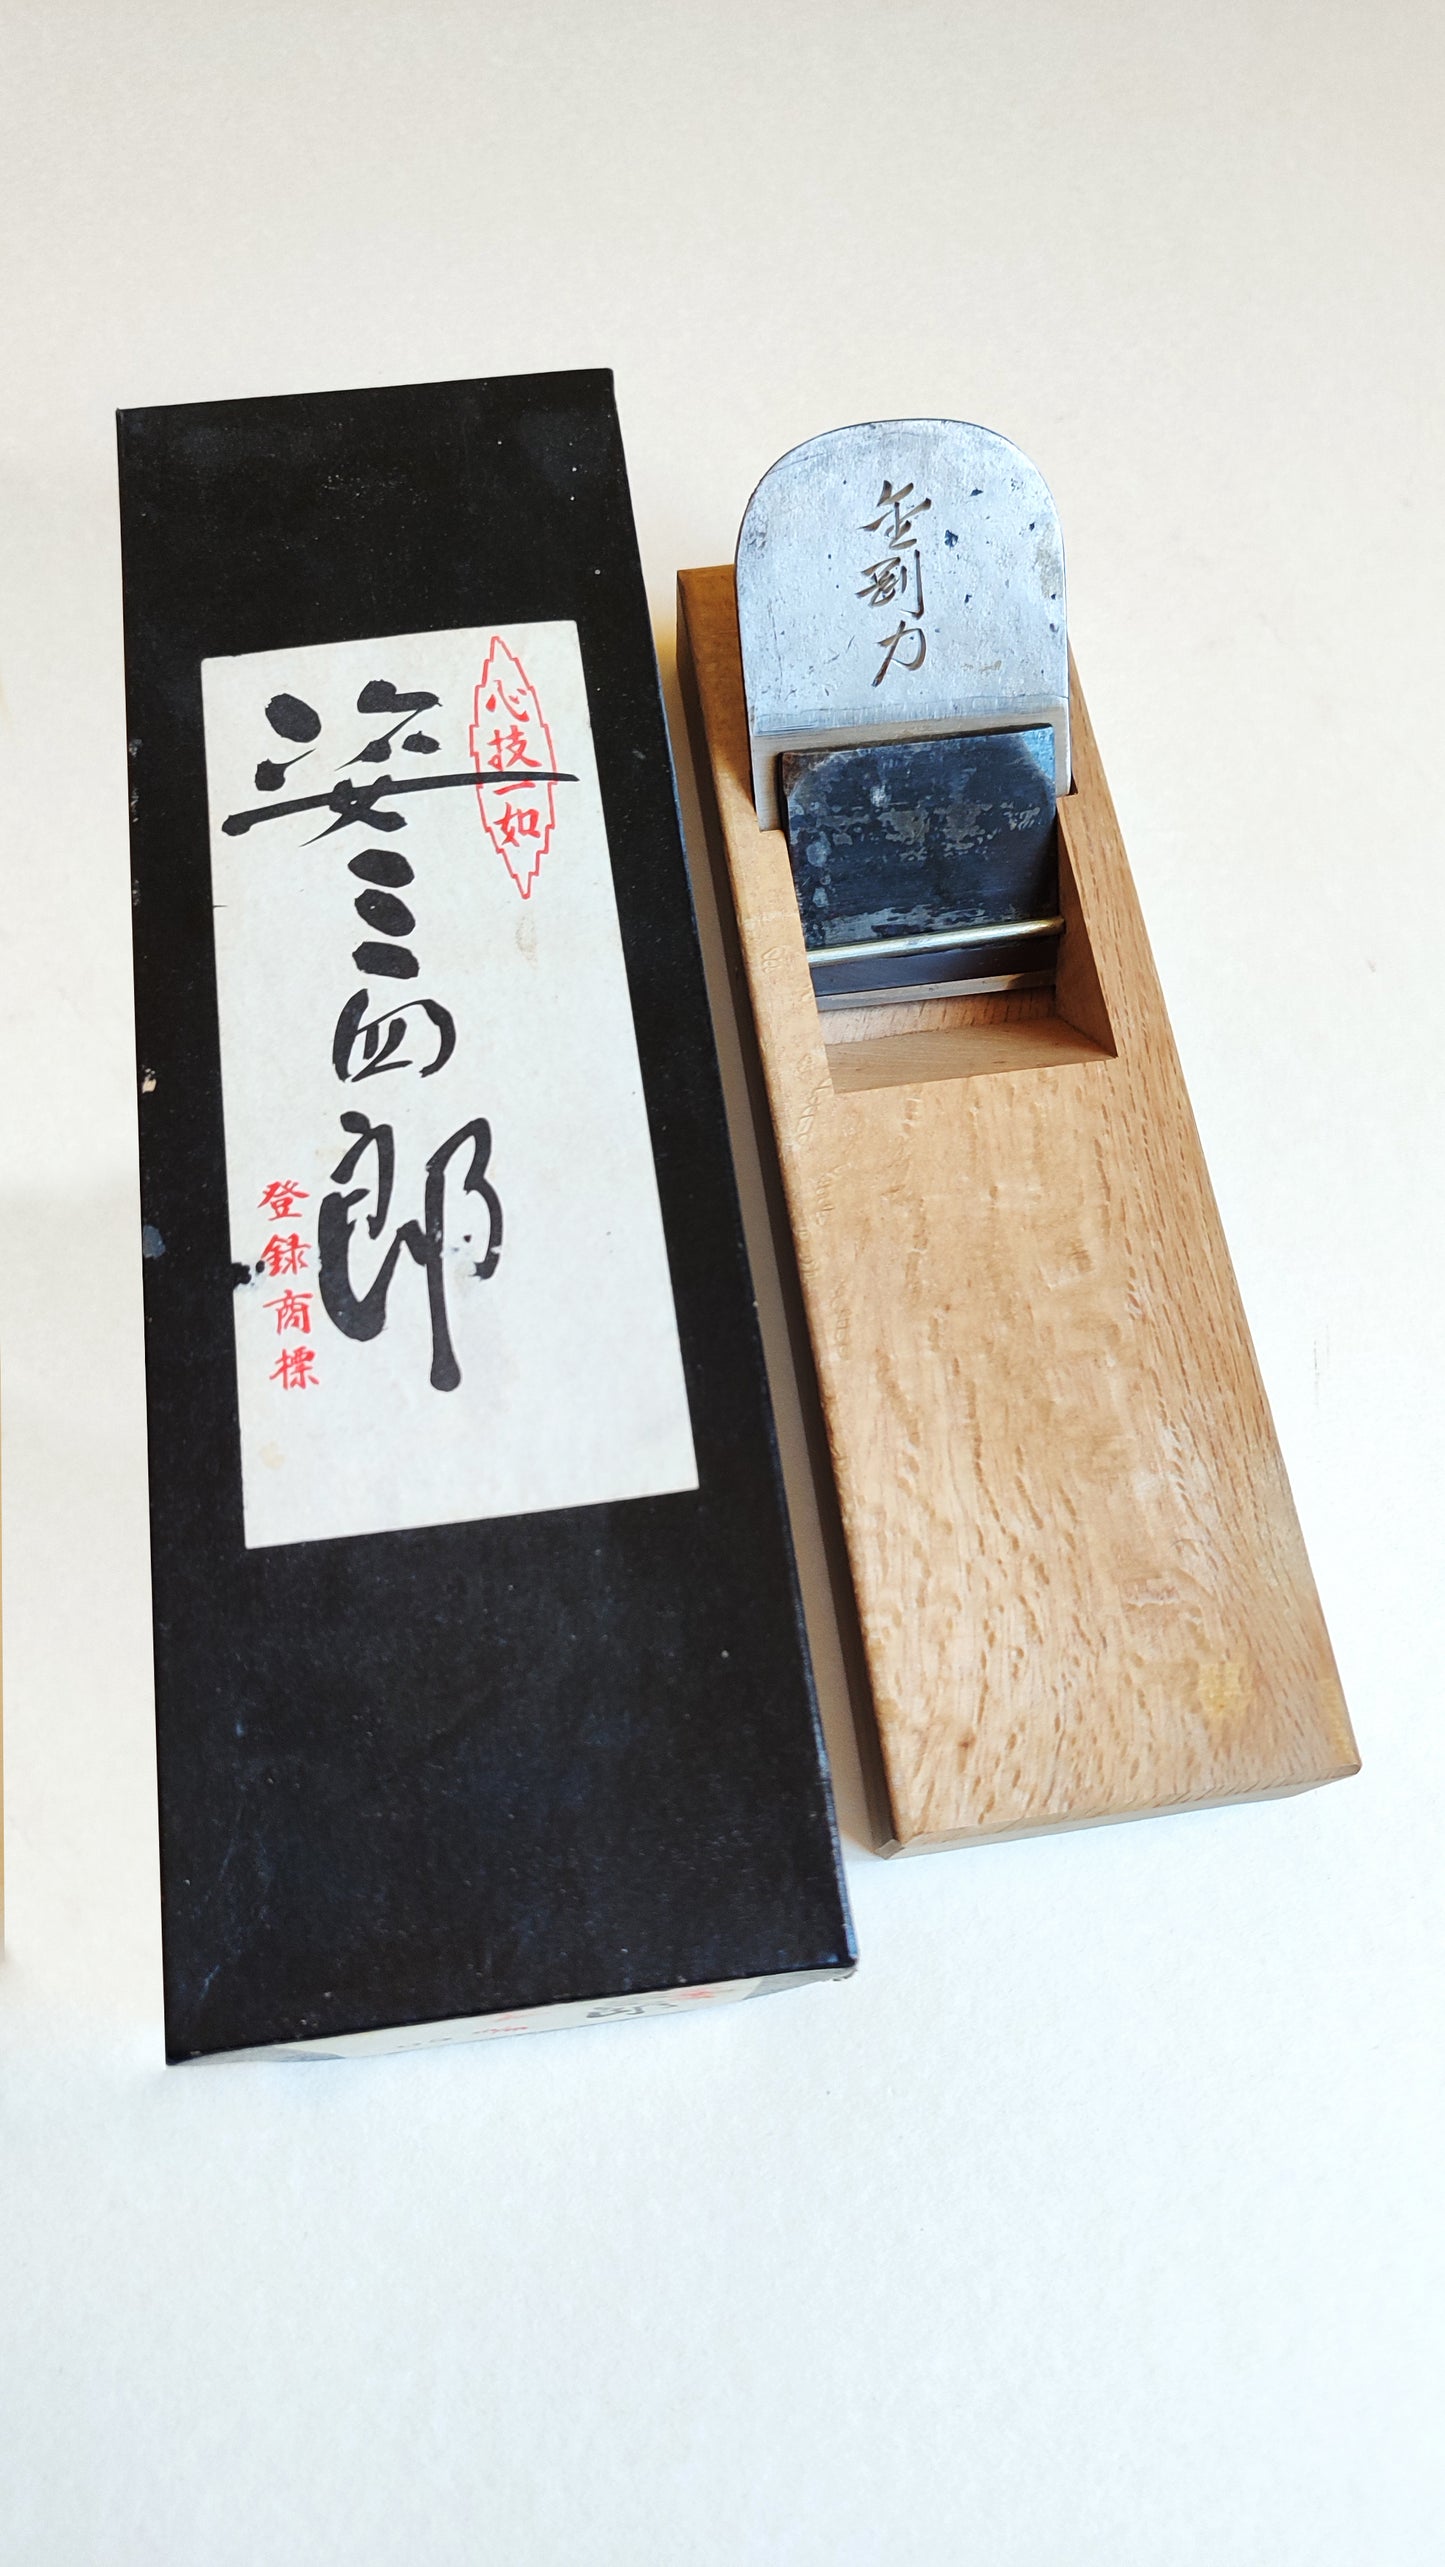 心技一如
姿三四郎
登録商標
金剛力